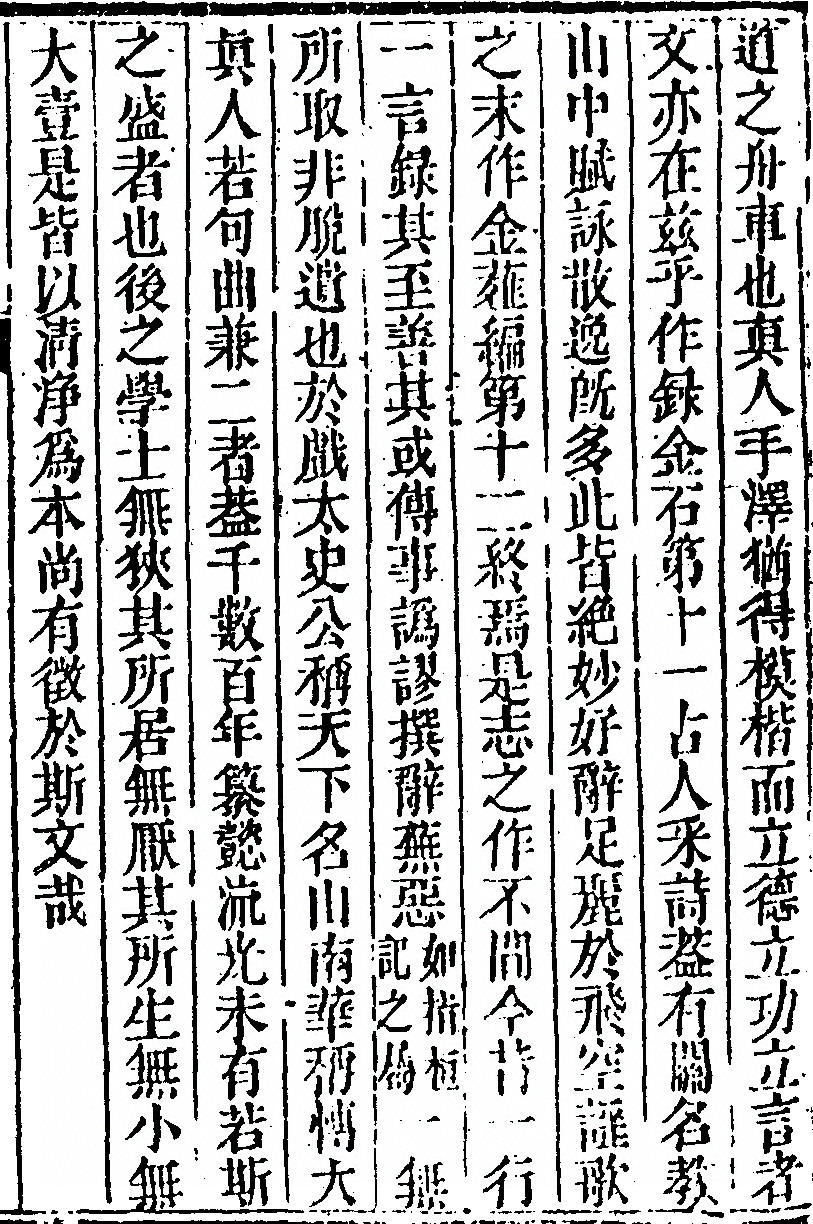 道之舟車也真人手澤猶得模楷而立德立功立言者
文亦在茲乎作錄金石第十一古人采詩蓋有關名教
山中賦詠散逸旣多此皆絶妙好辭足麗於飛空謠歌
之末作金薤編第十二終焉是志之作不間今昔一行
一言錄其至善其或傳事譌謬撰辭蕪惡如捨桓記之僞一無
所取非脫遺也於戲太史公稱天下名山南華稱慱大
真人若句曲兼二者蓋千數百年纂懿流光未有若斯
之盛者也後之學士無狹其所居無厭其所生無小無
大壹是皆以清淨爲本尚有徵於斯文哉